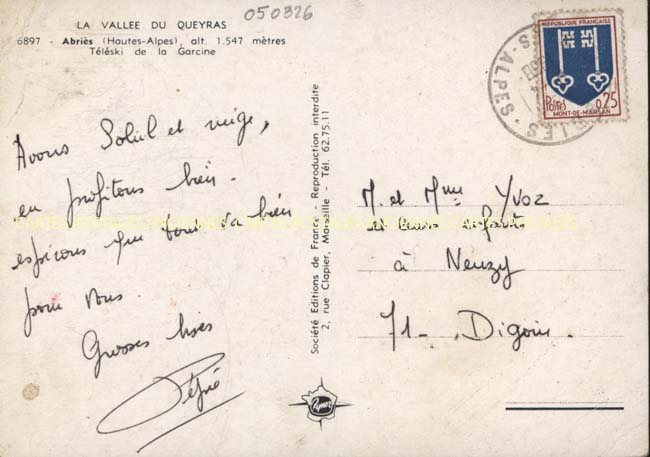 050326
LA VALLEE DU QUEYRAS
6897 - Abriès (Hautes-Alpes), alt. 1.547 mètres
Téléski de la Garcine
Avons Soleil et neige,
en profitons bien.
espérons que tout va bien
pour vous.
Grosses bises
Société Editions de France - Reproduction interdite
2, rue Clapier, Marseille - Tél. 62.75.11
REPUBLIQUE FRANÇAISE
Postes 0,25
MONT-DE-MARSAN
S-ALPES
M. et Mme Yvoz
et leurs enfants
à Neuzy
71- Digoin.